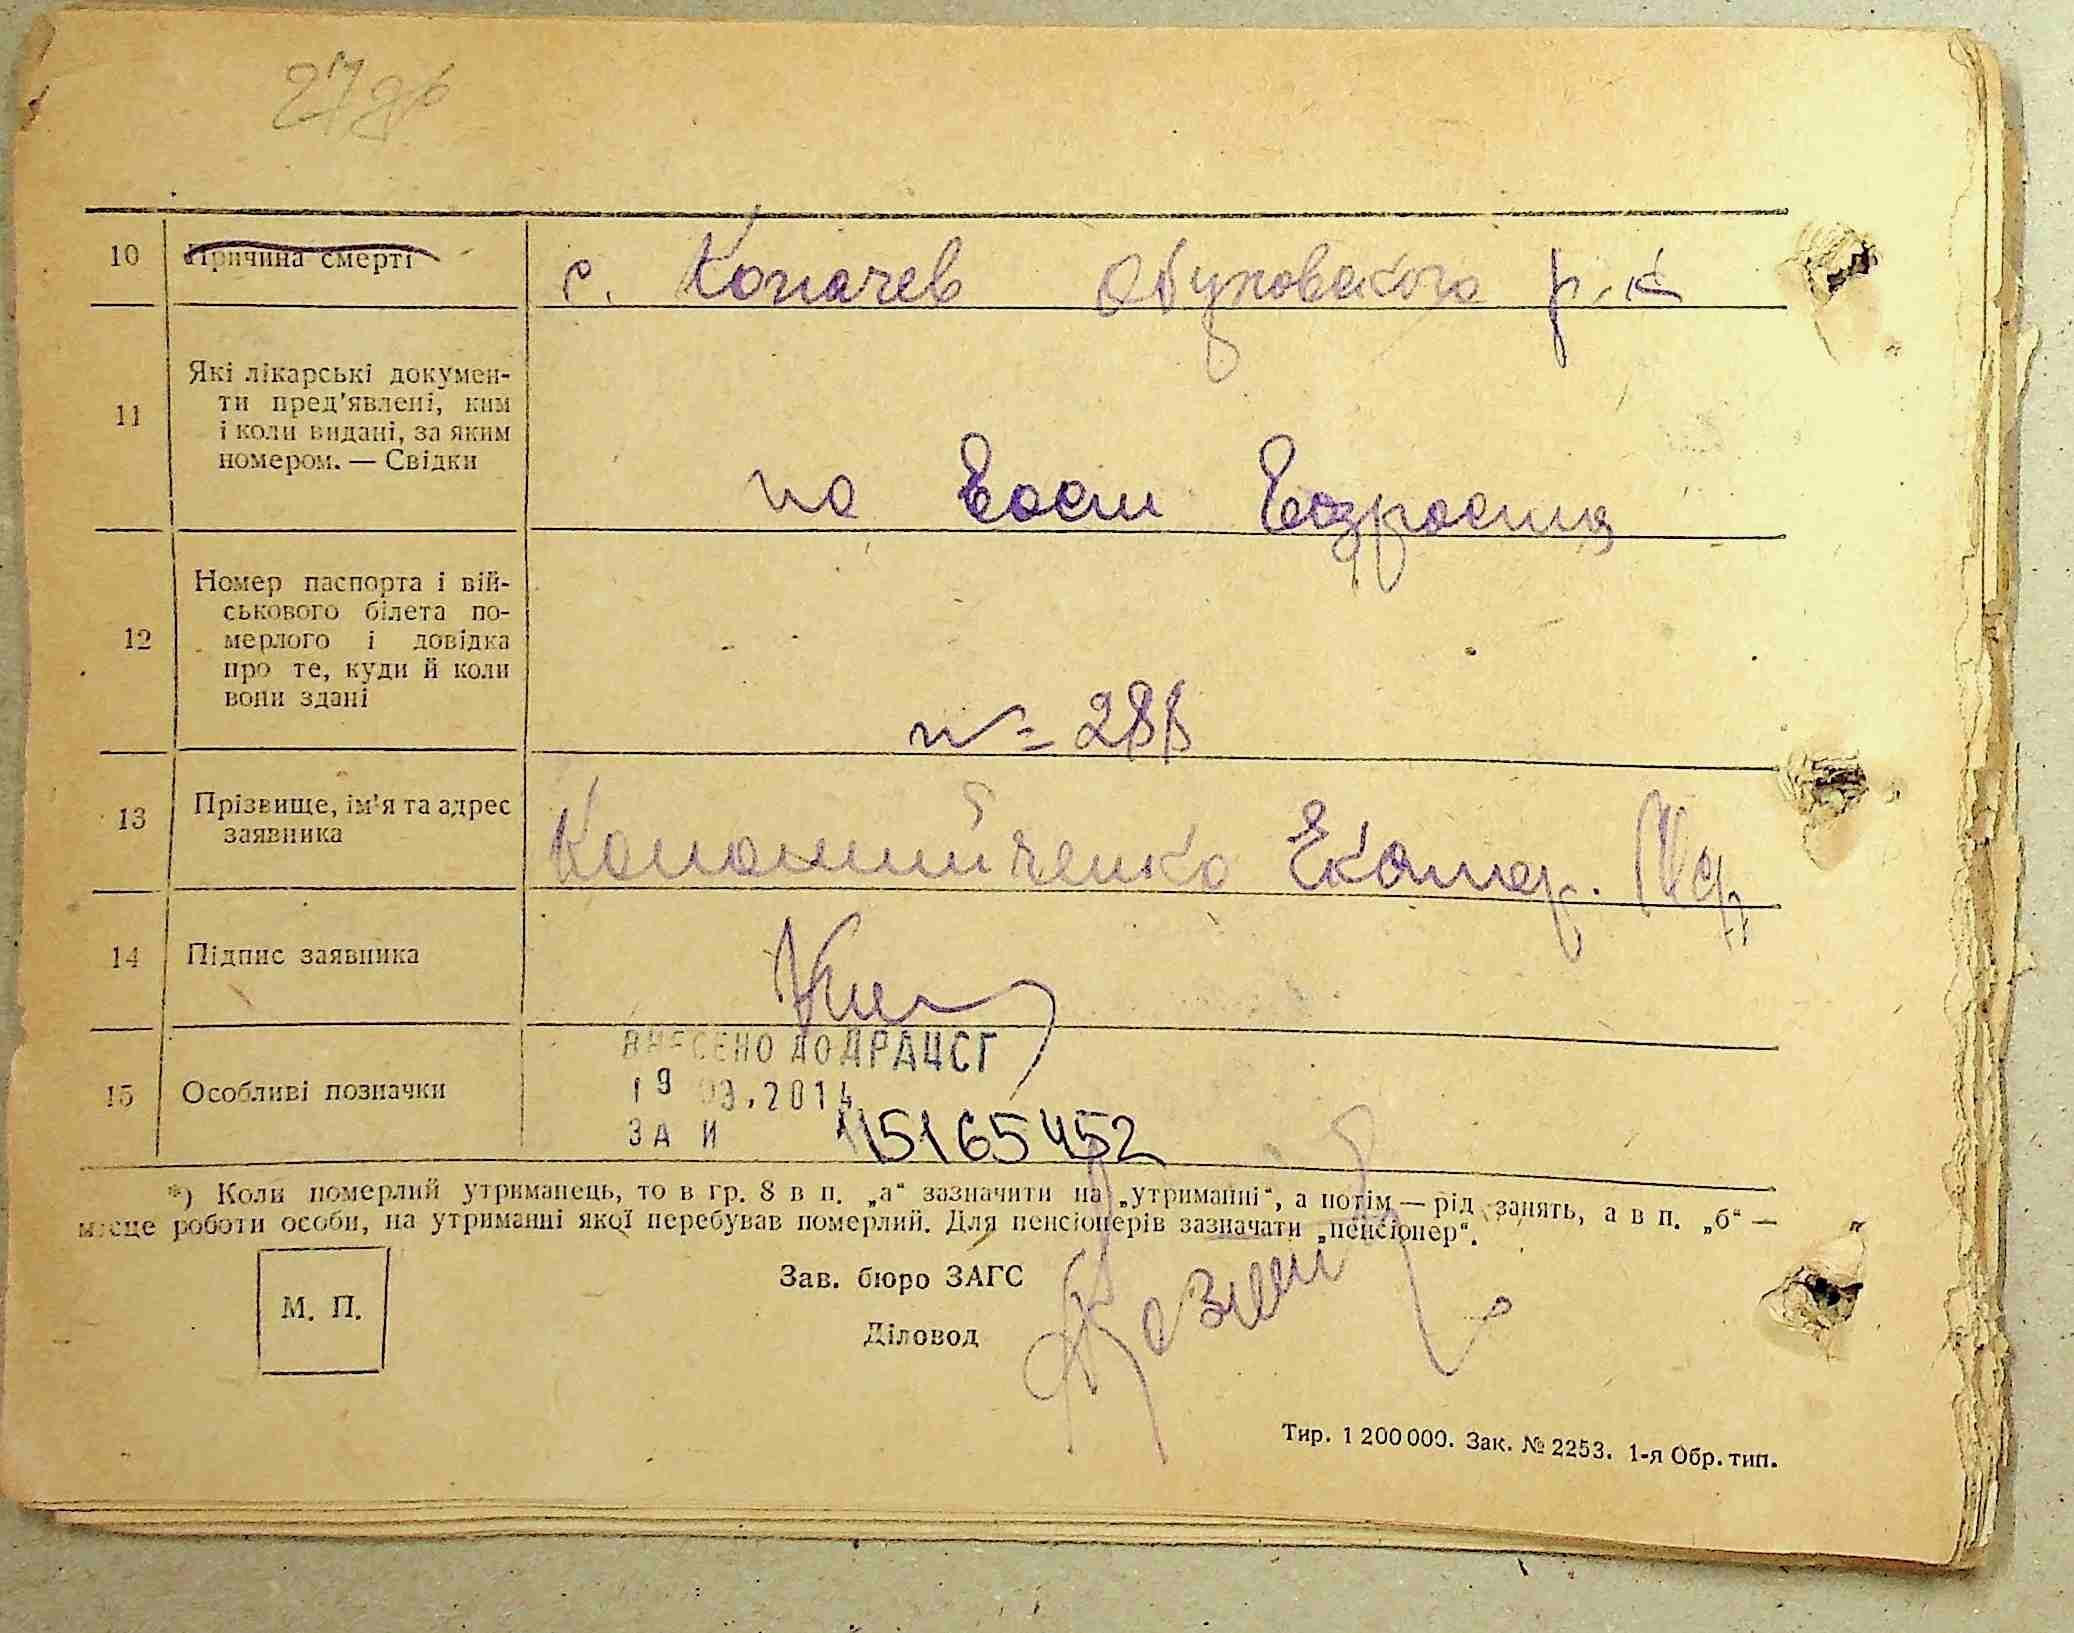 27
10 Причина смерті с. Копачев Обуховского р-на
11 Які лікарські докумен-
ти пред'явлені, ким
і коли видані, за яким
номером. — Свідки
по
12 Номер паспорта і вій-
ськового білета по-
мерлого і довідка
про те, куди й коли
вони здані
№ 288
13 Прізвище, ім'я та адрес
заявника
Коломийченко Екатер.
14 Підпис заявника
ВНЕСЕНО ДО ДРАЦСГ
15 Особливі позначки
19 03.2014
ЗА N 15165452
*) Коли померлий утриманець, то в гр. 8 в п. „а“ зазначити на „утриманні“, а потім — рід занять, а в п. „б“ —
місце роботи особи, на утриманні якої перебував померлий. Для пенсіонерів зазначати „пенсіонер“.
Зав. бюро ЗАГС
М. П.
Діловод
Тир. 1 200 000. Зак. № 2253. 1-я Обр. тип.